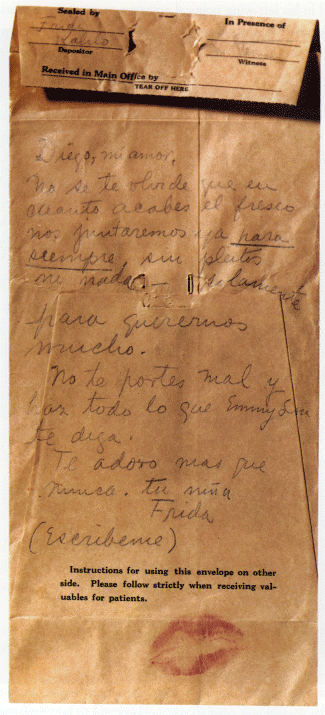 Sealed by
In Presence of
Frida
Kahlo
Depositor
Witness
Received in Main Office by
TEAR OFF HERE
Diego, mi amor,
No se te olvide que en
cuanto acabes el fresco
nos juntaremos ya para
siempre, sin pleitos
ni nada - solamente
para querernos
mucho.
No te portes mal y
haz todo lo que Emmy Lou
te diga.
Te adoro mas que
nunca. tu niña
Frida
(Escribeme)
Instructions for using this envelope on other
side. Please follow strictly when receiving val-
uables for patients.